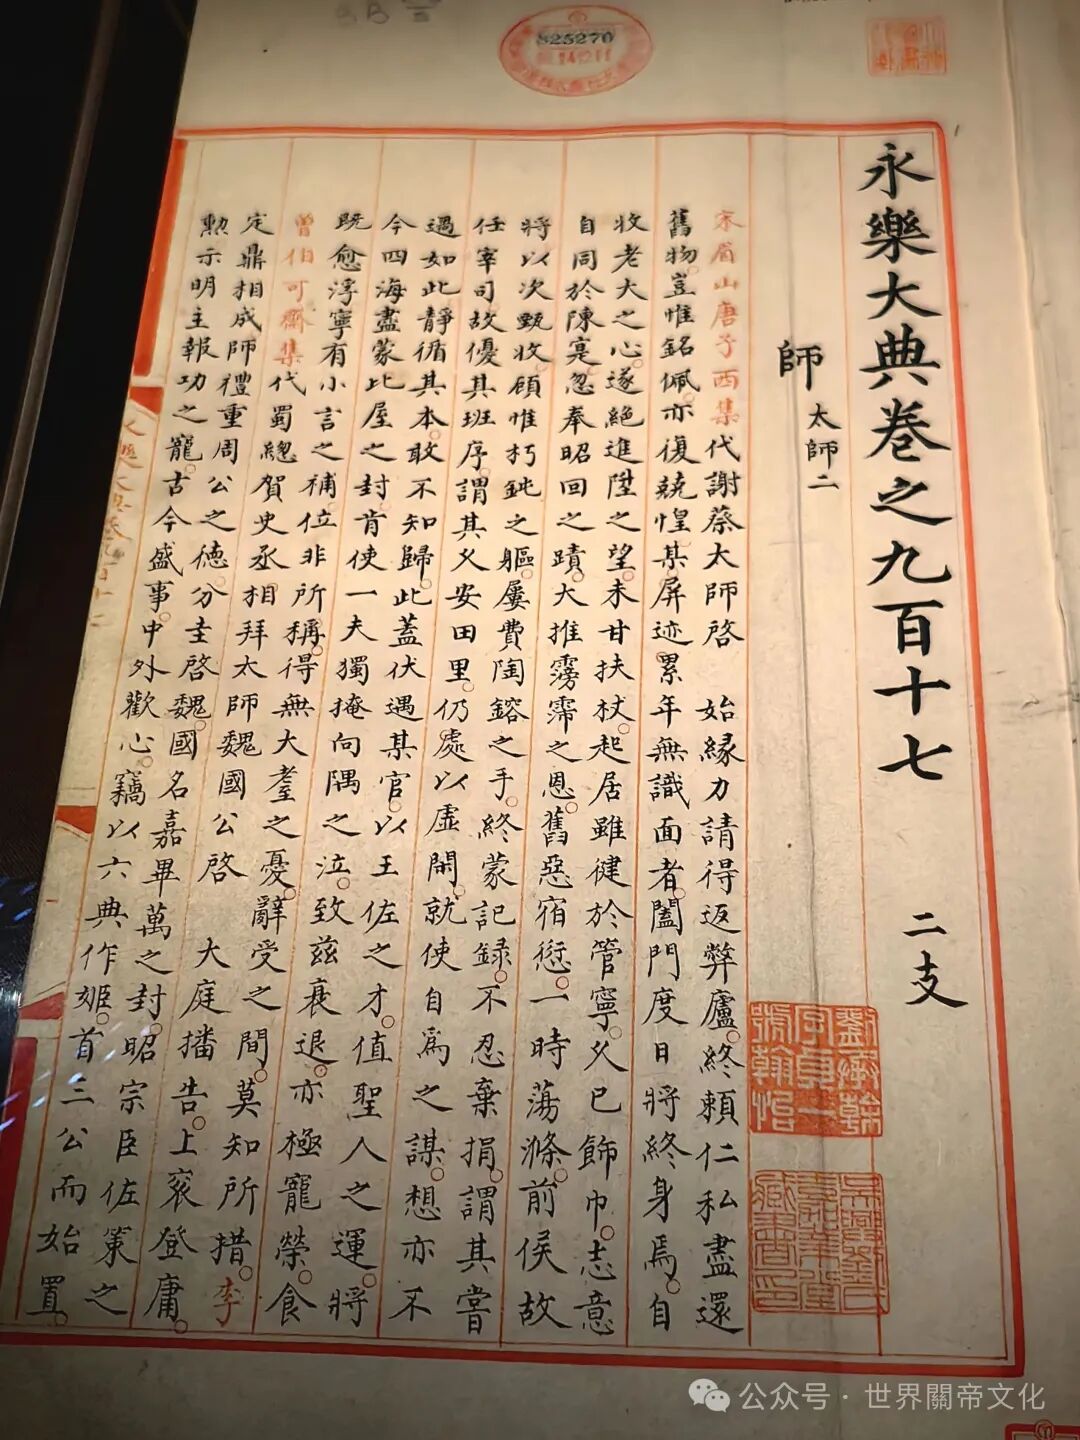 825270
永樂大典卷之九百十七 二支
師 太師二
宋眉山唐子西集代謝蔡太師啓 始緣力請得返弊廬。終賴仁私盡還
舊物。豈惟銘佩。亦復兢惶。某屏迹累年無識面者。闔門度日將終身焉。自
收老大之心。遂絕進陞之望。未甘扶杖。起居雖健於管寧。乂已飾巾。志意
自同於陳寔。忽奉昭回之蹟。大推霶霈之恩。舊惡宿愆。一時蕩滌。前侯故
將以次甄收。顧惟朽鈍之軀。屢費陶鎔之手。終蒙記録。不忍棄捐。謂其嘗
任宰司故優其班序。謂其乂安田里。仍處以虛閑。就使自爲之謀。想亦不
過如此靜循其本。敢不知歸。此蓋伏遇某官。以王佐之才。值聖人之運。將
今四海盡蒙比屋之封。肯使一夫獨掩向隅之泣。致兹衰退。亦極寵榮。食
既愈浮寧有小言之補。位非所稱。得無大耋之憂。辭受之間。莫知所措。李
曾伯可齋集代蜀總賀史丞相拜太師魏國公啓 大庭播告。上衮登庸。
定鼎相成師禮重周公之德。分圭啓魏。國名嘉畢萬之封。昭宗臣佐策之
勲示明主報功之寵。古今盛事。中外歡心。竊以六典作姬。首三公而始置。
劉承幹字貞一號翰怡
吳興劉氏嘉業堂藏書印
公众号 · 世界關帝文化